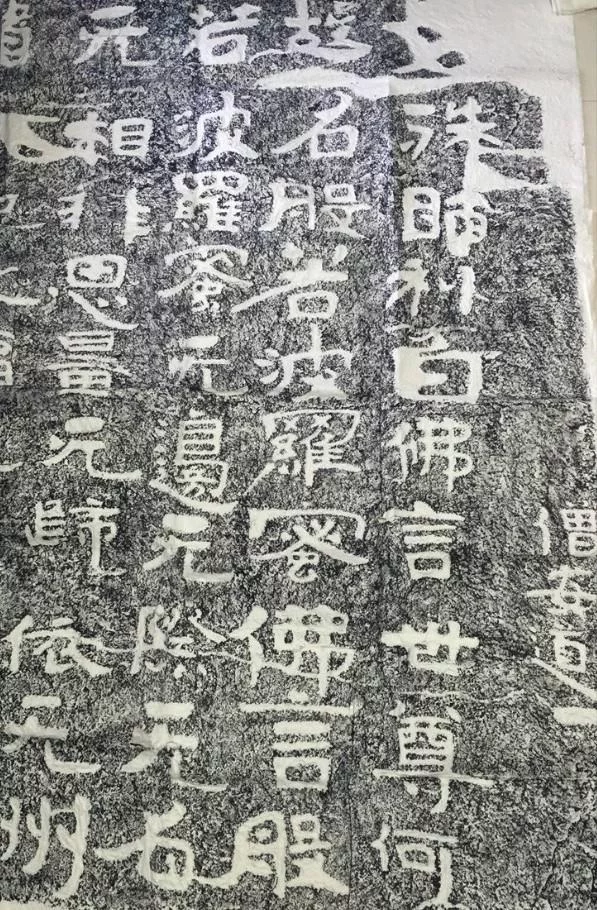 僧安道一
文殊師利白佛言世尊何
故名般若波羅蜜佛言般
若波羅蜜无邊无際无名
无相非思量无歸依无州